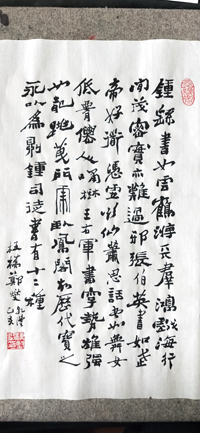 鍾繇書如雲鵠游天羣鴻戲海行
間茂密實亦難過邪張伯英書如武
帝好道憑虛欲仙蕭思話書如舞女
低腰僊人嘯樹王右軍書字勢雄強
如龍跳天門虎臥鳳閣故歷代寶之
永以為訓鍾司徒書有十二種
板橋鄭燮